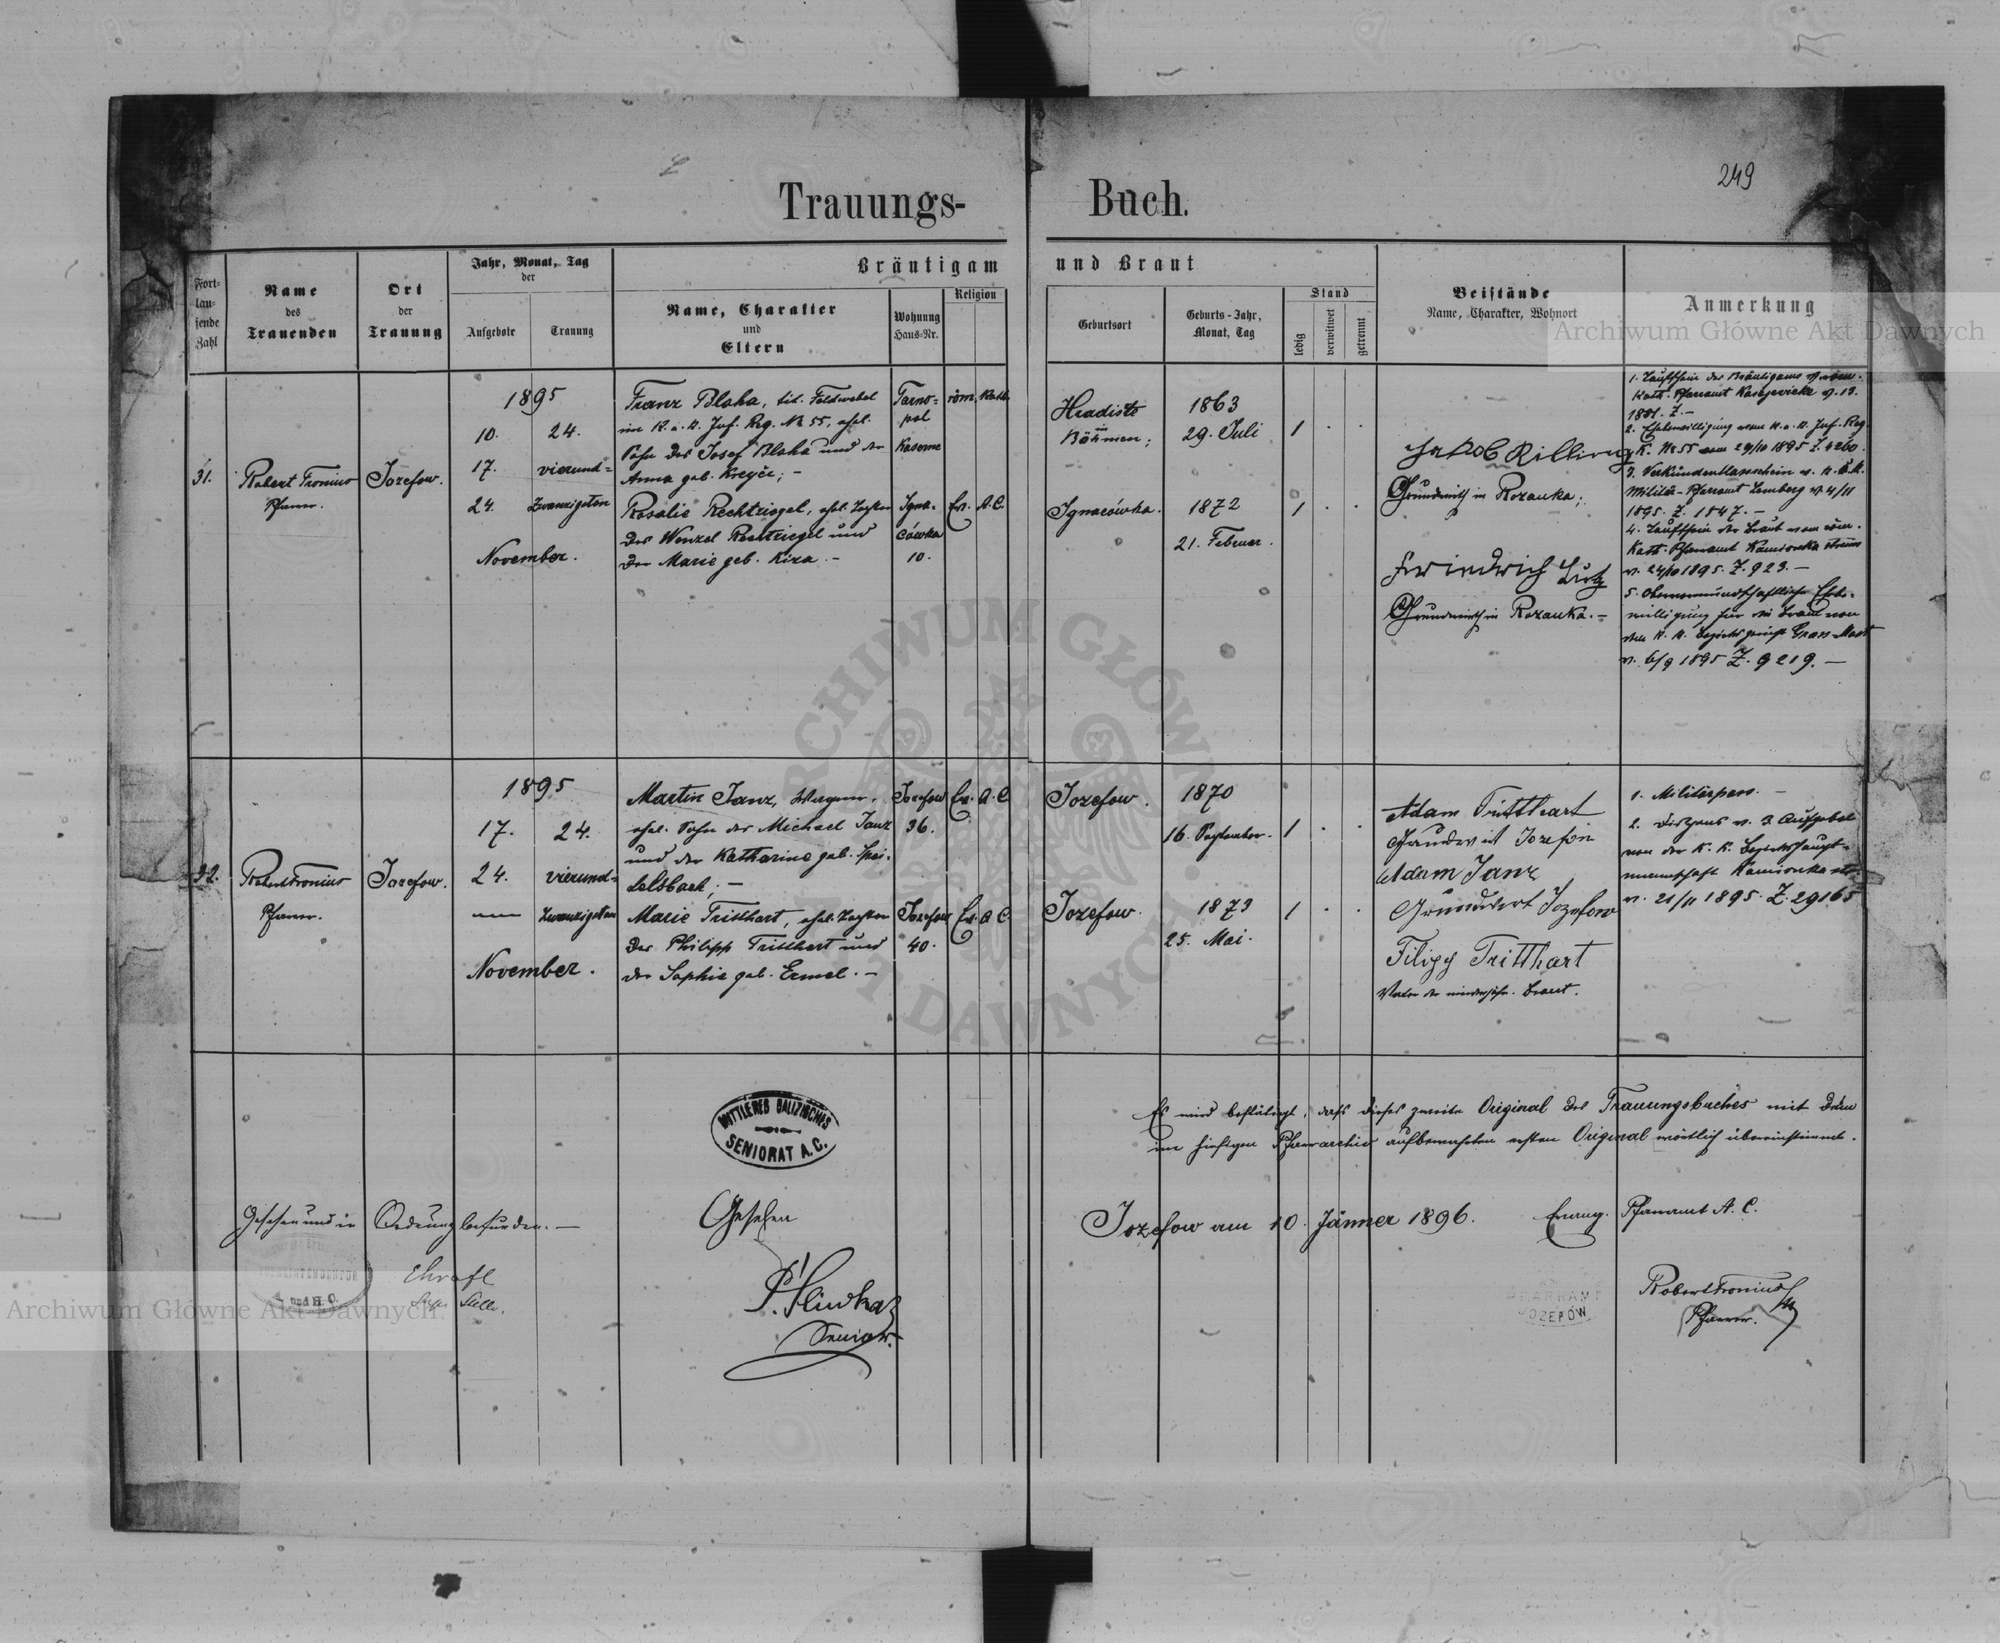 249
Trauungs- Buch.
Fort-
lau-
fende
Zahl
Name
des
Trauenden
Ort
der
Trauung
Jahr, Monat, Tag
der
Aufgebote
Trauung
Bräutigam und Braut
Name, Charakter
und
Eltern
Wohnung
Haus-Nr.
Religion
Geburtsort
Geburts-Jahr,
Monat, Tag
Stand
ledig
verwitwet
getrennt
Beistände
Name, Charakter, Wohnort
Anmerkung
31.
Robert Fronius
Pfarrer.
Jozefow.
1895
10. 24.
17. vierund=
24. zwanzigsten
November.
Franz Blaha, tit. Feldwebel
im K. u. K. Inf. Reg. No 55, ehel.
Sohn des Josef Blaha und der
Anna geb. Kreyče; -
Tarno-
pol
Kaserne
röm. Kath.
Hradiste
in
Böhmen;
1863
29. Juli
1
Rosalie Rechtziegel, ehel. Tochter
des Wenzel Rechtziegel und
der Marie geb. Kiza. -
Igna-
cówka
10.
Ev. A. C.
Ignacówka.
1872
21. Februar.
1
Jakob Rilling
Grundwirth in Rozanka;
Friedrich Lutz
Grundwirth in Rozanka. -
1. Taufschein des Bräutigams v. röm.
Kath. Pfarramt
1881. Z. -
2. Ehebewilligung vom K. u. K. Inf. Reg.
K. No 55 vom 29/10 1895 Z. 4260.
3. Verkündschein v. K. u. K.
Militär-Pfarramt Lemberg v. 4/11
1895. Z. 1847. -
4. Taufschein der Braut vom röm.
Kath. Pfarramt Kamionka strum
v. 24/10 1895. Z. 923. -
5. Obervormundschaftliche Ehebe-
willigung für die Braut von
dem K. K. Bezirksgericht Gross-Most
v. 6/9 1895 Z. 9219. -
32.
Robert Fronius
Pfarrer.
Jozefow.
1895
17. 24.
24. vierund=
zwanzigsten
November.
Martin Janz, Wagner,
ehel. Sohn des Michael Janz
und der Katharine geb. Spei-
delsbach; -
Jozefow
36.
Ev. A. C.
Jozefow.
1870
16. September.
1
Marie Tritthart, ehel. Tochter
des Philipp Tritthart und
der Sophie geb. Ermel. -
Jozefow
40.
Ev. A. C.
Jozefow.
1873
25. Mai.
1
Adam Tritthart
Adam Janz
Grundwirt Jozefow
Filipp Tritthart
Vater der minderjähr. Braut.
1. Militärpass. -
2. Dispens v. 3. Aufgebot
von der K. K. Bezirkshaupt-
mannschaft Kamionka str.
v. 21/11 1895. Z. 29165
MITTLERES GALIZISCHES
SENIORAT A. C.
Es wird bestätigt, dass dieses zweite Original des Trauungsbuches mit dem
im hiesigen Pfarrarchiv aufbewahrten ersten Original wörtlich übereinstimmt.
Gesehen und in Ordnung befunden. -
Gesehen
Senior.
Jozefow am 10. Jänner 1896. Evang. Pfarramt A. C.
Robert Fronius
Pfarrer.
PFARRAMT
JOZEFÓW
Archiwum Główne Akt Dawnych
Archiwum Główne Akt Dawnych
ARCHIWUM GŁÓWNE AKT DAWNYCH